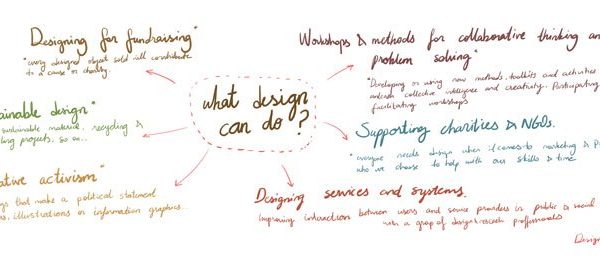 Designing for fundraising"
"every designed object sold will contribute
to a cause or charity.
ainable design"
sustainable material, recycling &
ling projects, so on..
ative activism"
gs that make a political statement
s, illustrations or information graphics.
what design
can do?
Workshops & methods for collaborative thinking an
problem solving"
"Developing or using new methods, toolkits and activities
collective intelligence and creativity. Participating
facilitating workshops
Supporting charities & NGOs.
"everyone needs design when it comes to marketing & P
who we choose to help with our skills & time
Designing services and systems.
Improving interaction between users and service providers in public & social
with a group of design/research professionals
Design